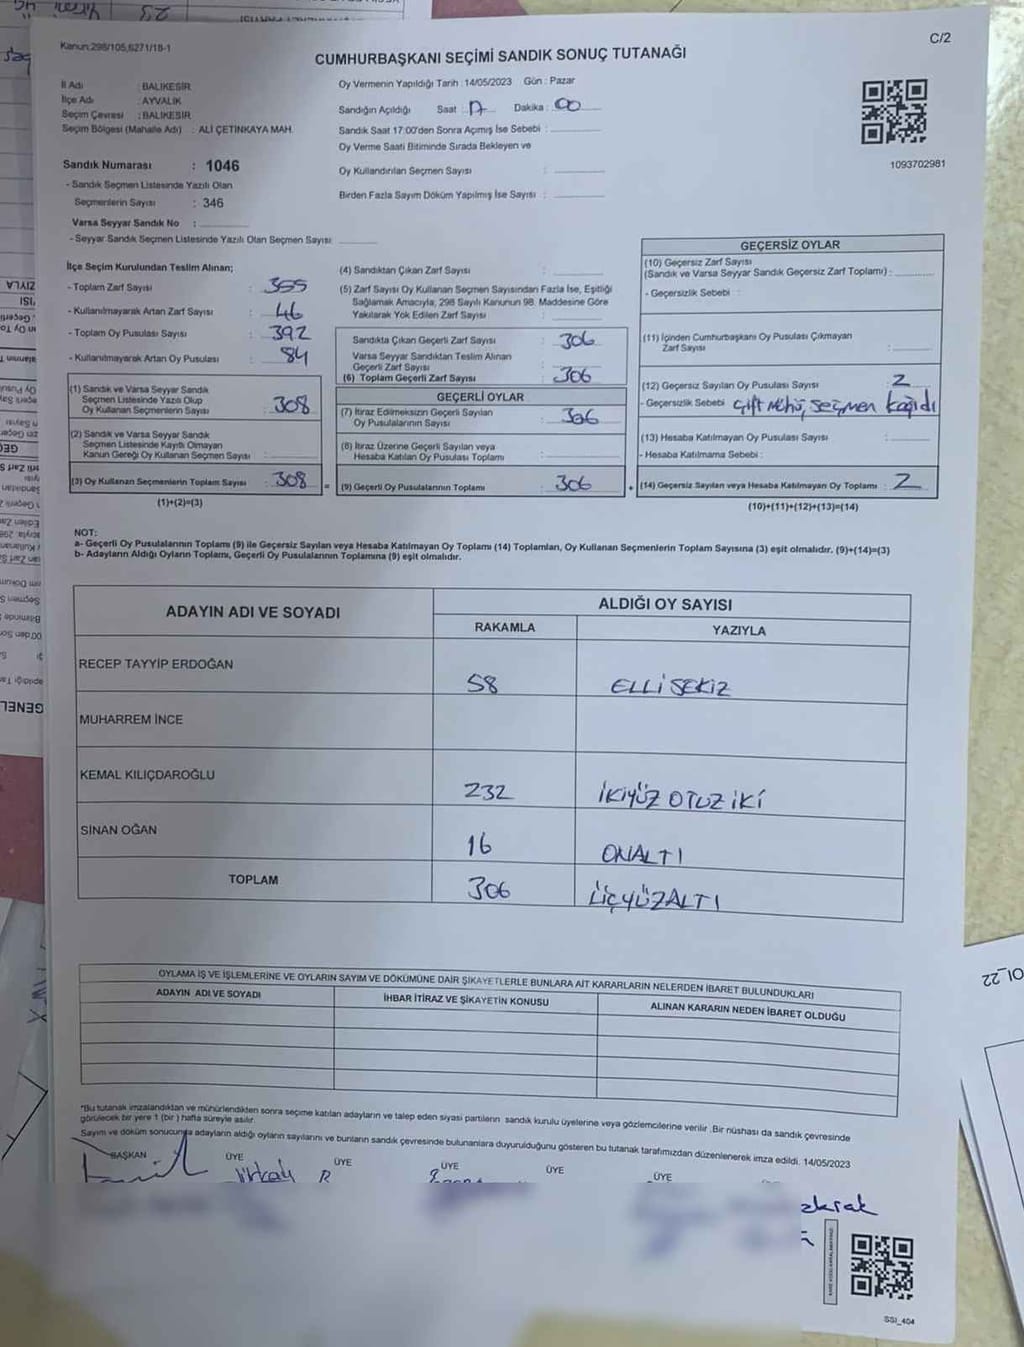 Kanun:298/105,6271/18-1
C/2
CUMHURBAŞKANI SEÇİMİ SANDIK SONUÇ TUTANAĞI
İl Adı : BALIKESİR
İlçe Adı : AYVALIK
Seçim Çevresi : BALIKESİR
Seçim Bölgesi (Mahalle Adı) : ALİ ÇETİNKAYA MAH.
Sandık Numarası : 1046
- Sandık Seçmen Listesinde Yazılı Olan
Seçmenlerin Sayısı : 346
Varsa Seyyar Sandık No :
- Seyyar Sandık Seçmen Listesinde Yazılı Olan Seçmen Sayısı:
Oy Vermenin Yapıldığı Tarih :14/05/2023 Gün : Pazar
Sandığın Açıldığı Saat : 17 Dakika : 00
Sandık Saat 17:00'den Sonra Açımış İse Sebebi :
Oy Verme Saati Bitiminde Sırada Bekleyen ve
Oy Kullandırılan Seçmen Sayısı :
Birden Fazla Sayım Döküm Yapılmış İse Sayısı :
1093702981
İlçe Seçim Kurulundan Teslim Alınan;
- Toplam Zarf Sayısı : 355
- Kullanılmayarak Artan Zarf Sayısı : 46
- Toplam Oy Pusulası Sayısı : 392
- Kullanılmayarak Artan Oy Pusulası : 84
(1) Sandık ve Varsa Seyyar Sandık
Seçmen Listesinde Yazılı Olup
Oy Kullanan Seçmenlerin Sayısı : 308
(2) Sandık ve Varsa Seyyar Sandık
Seçmen Listesinde Kayıtlı Olmayan
Kanun Gereği Oy Kullanan Seçmen Sayısı :
(3) Oy Kullanan Seçmenlerin Toplam Sayısı : 308
(1)+(2)=(3)
(4) Sandıktan Çıkan Zarf Sayısı :
(5) Zarf Sayısı Oy Kullanan Seçmen Sayısından Fazla İse, Eşitliği
Sağlamak Amacıyla, 298 Sayılı Kanunun 98. Maddesine Göre
Yakılarak Yok Edilen Zarf Sayısı :
Sandıkta Çıkan Geçerli Zarf Sayısı : 306
Varsa Seyyar Sandıktan Teslim Alınan
Geçerli Zarf Sayısı :
(6) Toplam Geçerli Zarf Sayısı : 306
GEÇERLİ OYLAR
(7) İtiraz Edilmeksizin Geçerli Sayılan
Oy Pusulalarının Sayısı : 306
(8) İtiraz Üzerine Geçerli Sayılan veya
Hesaba Katılan Oy Pusulası Toplamı :
= (9) Geçerli Oy Pusulalarının Toplamı : 306
GEÇERSİZ OYLAR
(10) Geçersiz Zarf Sayısı
(Sandık ve Varsa Seyyar Sandık Geçersiz Zarf Toplamı) :
- Geçersizlik Sebebi :
(11) İçinden Cumhurbaşkanı Oy Pusulası Çıkmayan
Zarf Sayısı :
(12) Geçersiz Sayılan Oy Pusulası Sayısı : 2
- Geçersizlik Sebebi : Çift Mühür, Seçmen kağıdı
(13) Hesaba Katılmayan Oy Pusulası Sayısı :
- Hesaba Katılmama Sebebi :
+ (14) Geçersiz Sayılan veya Hesaba Katılmayan Oy Toplamı : 2
(10)+(11)+(12)+(13)=(14)
NOT:
a- Geçerli Oy Pusulalarının Toplamı (9) ile Geçersiz Sayılan veya Hesaba Katılmayan Oy Toplamı (14) Toplamları, Oy Kullanan Seçmenlerin Toplam Sayısına (3) eşit olmalıdır. (9)+(14)=(3)
b- Adayların Aldığı Oyların Toplamı, Geçerli Oy Pusulalarının Toplamına (9) eşit olmalıdır.
ADAYIN ADI VE SOYADI
ALDIĞI OY SAYISI
RAKAMLA YAZIYLA
RECEP TAYYİP ERDOĞAN 58 ELLİ SEKİZ
MUHARREM İNCE
KEMAL KILIÇDAROĞLU 232 İKİYÜZ OTUZ İKİ
SİNAN OĞAN 16 ONALTI
TOPLAM 306 ÜÇYÜZALTI
OYLAMA İŞ VE İŞLEMLERİNE VE OYLARIN SAYIM VE DÖKÜMÜNE DAİR ŞİKAYETLERLE BUNLARA AİT KARARLARIN NELERDEN İBARET BULUNDUKLARI
ADAYIN ADI VE SOYADI İHBAR İTİRAZ VE ŞİKAYETİN KONUSU ALINAN KARARIN NEDEN İBARET OLDUĞU
*Bu tutanak imzalandıktan ve mühürlendikten sonra seçime katılan adayların ve talep eden siyasi partilerin sandık kurulu üyelerine veya gözlemcilerine verilir .Bir nüshası da sandık çevresinde
görülecek bir yere 1 (bir ) hafta süreyle asılır.
Sayım ve döküm sonucunda adayların aldığı oyların sayılarını ve bunların sandık çevresinde bulunanlara duyurulduğunu gösteren bu tutanak tarafımızdan düzenlenerek imza edildi. 14/05/2023
BAŞKAN ÜYE ÜYE ÜYE ÜYE ÜYE
SSI_404